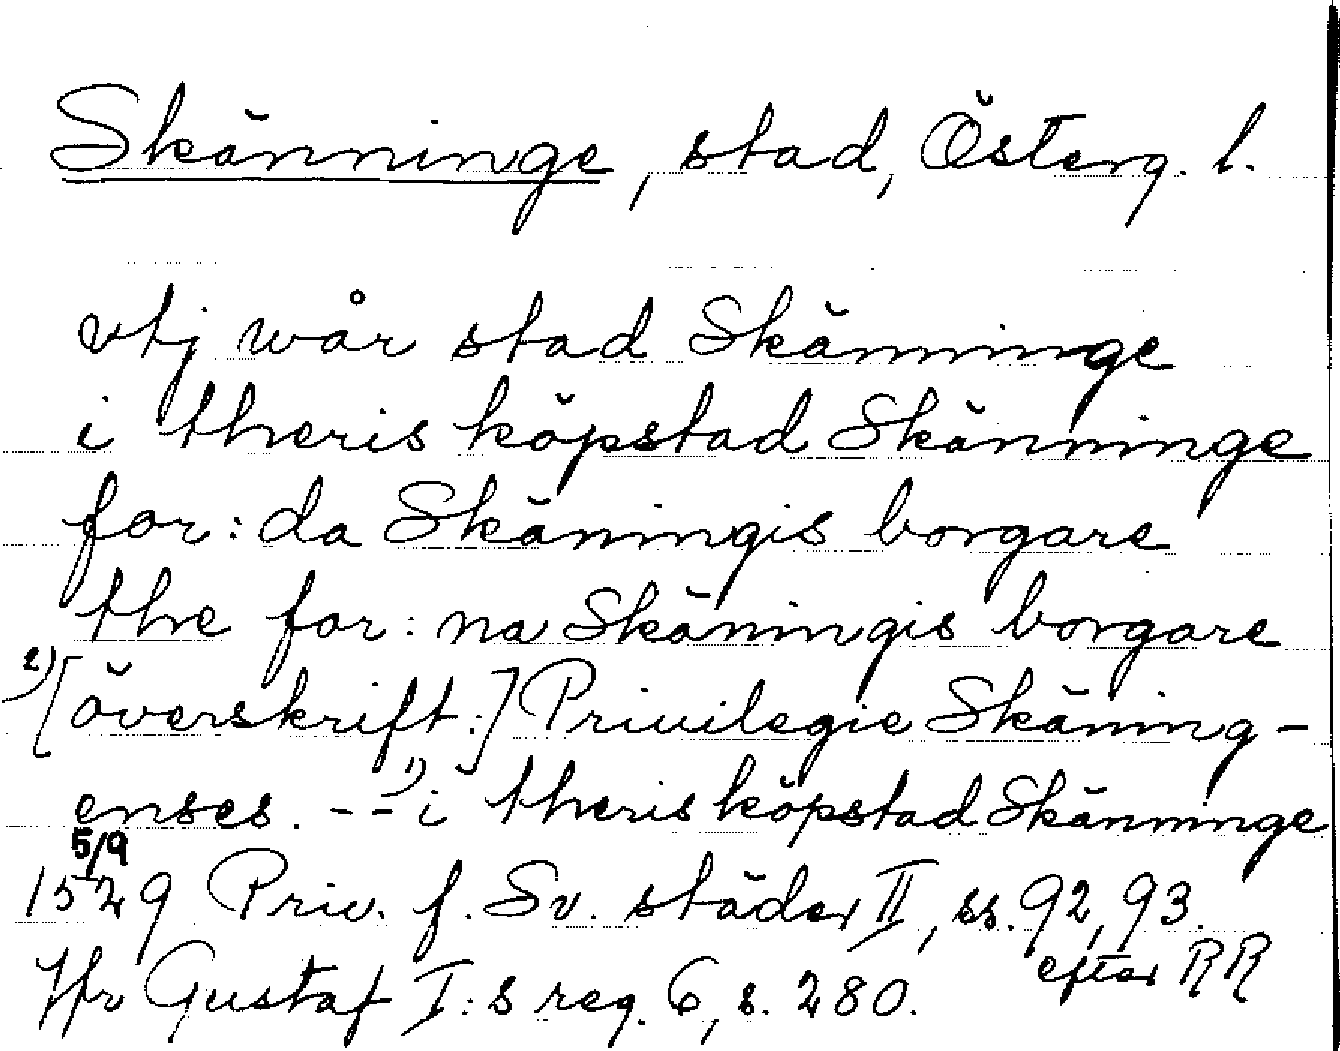 Skänninge, stad, Österg. l.
vtj wår stad Skänninge
i theris köpstad Skänninge
for: da Skäningis borgare
the for: na Skäningis borgare
2) [överskrift:] Priuilegie Skäning-
enses. -- 1) i theris köpstad Skänninge
5/9
1529 Priv. f. Sv. städer II, ss. 92, 93.
efter RR
Jfr Gustaf I:s reg. 6, s. 280.